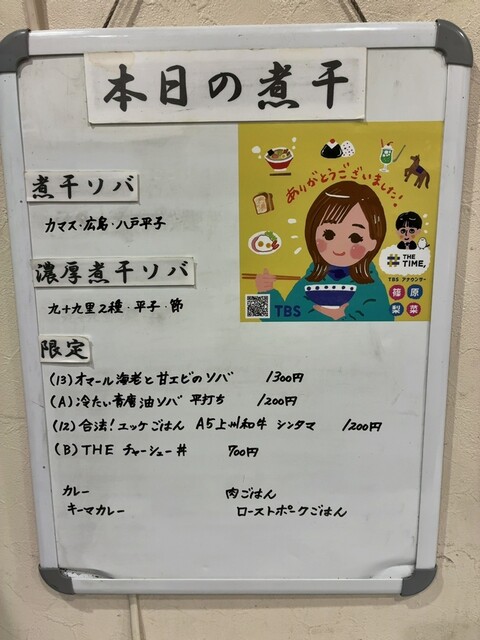 本日の煮干
煮干ソバ
カマス・広島・八戸平子
濃厚煮干ソバ
九十九里2種・平子・節
限定
(13)オマール海老と甘エビのソバ 1300円
(A)冷たい青唐油ソバ 平打ち 1200円
(12)合法!ユッケごはん A5上州和牛 シンタマ 1200円
(B)THE チャーシュー丼 700円
カレー 肉ごはん
キーマカレー ローストポークごはん
ありがとうございました!
THE TIME,
TBS アナウンサー
篠原
梨菜
TBS